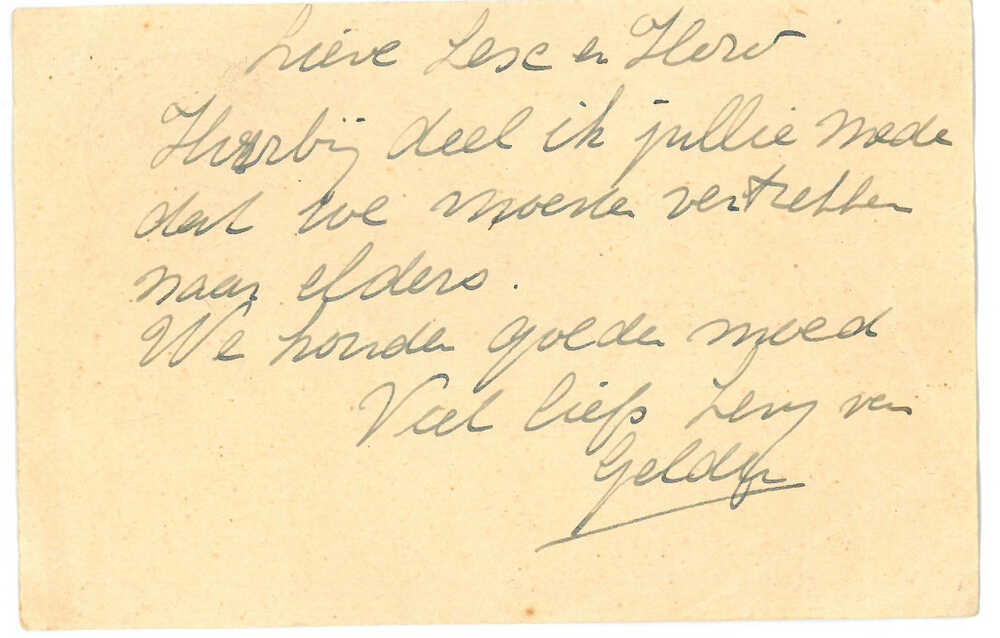 Lieve Lex en Herv
Hierbij deel ik jullie mede
dat we moeten vertrekken
naar elders.
We houden goeden moed
Veel liefs Leny van
Gelder